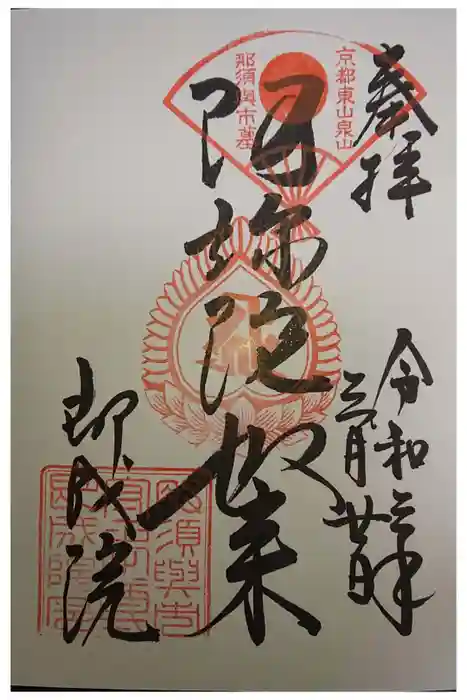 奉拝
令和三年
三月廿日
京都東山泉山
那須與市墓
阿弥陀如来
即成院